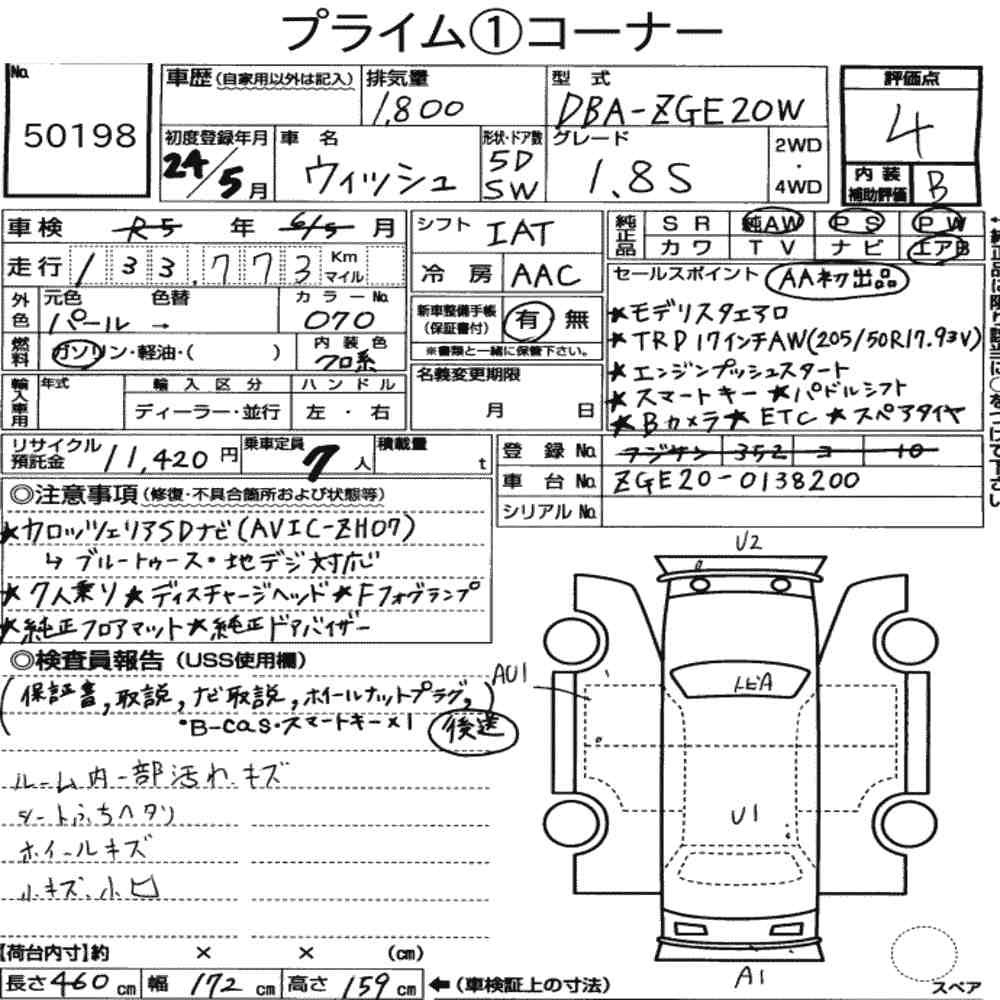 プライム①コーナー
No.
50198
車歴(自家用以外は記入)
排気量
1,800
型式
DBA-ZGE20W
初度登録年月
24/5月
車名
ウィッシュ
形状・ドア数
5D
SW
グレード
1.8S
2WD
・
4WD
評価点
4
内装
補助評価
B
車検 R5 年 6/5 月
走行 133,773 Km
マイル
シフト IAT
冷房 AAC
純正品
SR 純AW PS PW
カワ TV ナビ エアB
外色
元色 色替
パール →
カラーNo.
070
燃料
ガソリン・軽油・( )
内装色
クロ系
新車整備手帳
(保証書付)
有 無
※書類と一緒に保管下さい。
セールスポイント AA初出品
★モデリスタエアロ
★TRD17インチAW(205/50R17.93V)
★エンジンプッシュスタート
★スマートキー★パドルシフト
★Bカメラ★ETC★スペアタイヤ
輸入車用
年式
輸入区分
ディーラー・並行
ハンドル
左・右
名義変更期限
月 日
リサイクル
預託金
11,420円
乗車定員
7人
積載量
t
登録No. 352 10
車台No. ZGE20-0138200
シリアルNo.
◎注意事項(修復・不具合箇所および状態等)
★カロッツェリアSDナビ(AVIC-ZH07)
↳ブルートゥース・地デジ対応
★7人乗り★ディスチャージヘッド★Fフォグランプ
★純正フロアマット★純正ドアバイザー
◎検査員報告(USS使用欄)
(保証書,取説,ナビ取説,ホイールナットプラグ,)
・B-cas・スマートキー×1 後送
ルーム内一部汚れ.キズ
シートふちヘタリ
ホイールキズ
小キズ.小凹
U2
AU1
トビA
U1
A1
スペア
【荷台内寸】約 × × (cm)
長さ460cm 幅172cm 高さ159cm ←(車検証上の寸法)